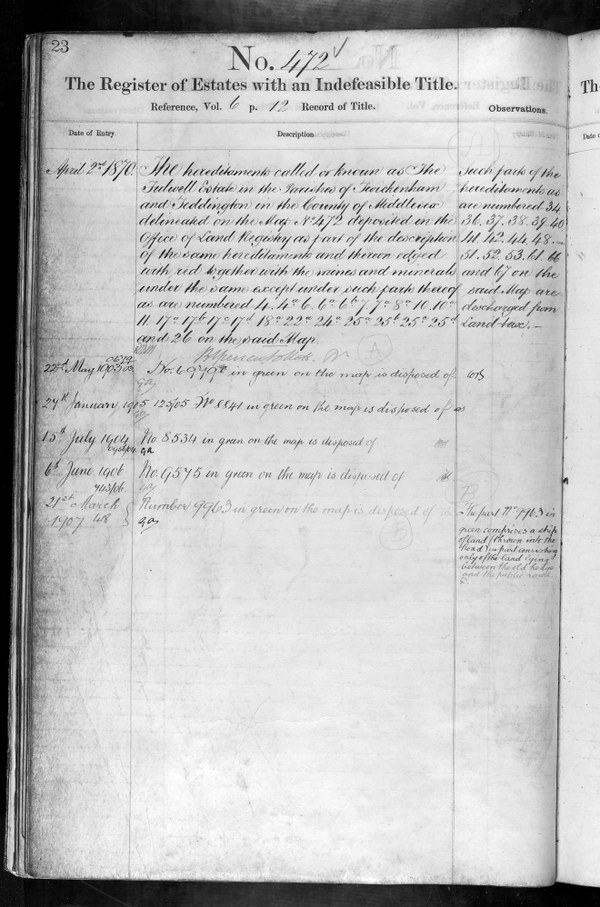 23
No. 472
The Register of Estates with an Indefeasible Title.
Reference, Vol. 6 p. 12 Record of Title.
Observations.
Date of Entry
Description
April 2nd 1870.
The hereditaments called or known as The
Fulwell Estate in the Parishes of Twickenham
and Teddington in the County of Middlesex
delineated on the Map No 472 deposited in the
Office of Land Registry as part of the description
of the same hereditaments and thereon edged
with red together with the mines and minerals
under the same except under such parts thereof
as are numbered 4. 4a 6. 6a 6b 7. 7a 8a 10. 10a
11. 17a 17b 17c 17d 18a 22a 24a 25a 25b 25c 25d
and 26 on the said Map.
Such parts of the
hereditaments as
are numbered 34
36. 37. 38. 39. 40
41. 42. 44. 48.
51. 52. 53. 61. 66
and 67 on the
said Map are
discharged from
Land-tax.
A
22nd May 1903
No. 6979 in green on the map is disposed of
27th January 1905
125/05 No 8841 in green on the map is disposed of
15th July 1904
No. 8534 in green on the map is disposed of
6th June 1906
743/06.
No. 9575 in green on the map is disposed of
21st March
1907
418
Number 9963 in green on the map is disposed of
B
The part No 9963 in
green comprises a strip
of land (thrown into the
Road) in part consisting
only of the land lying
between the old hedge
and the public road